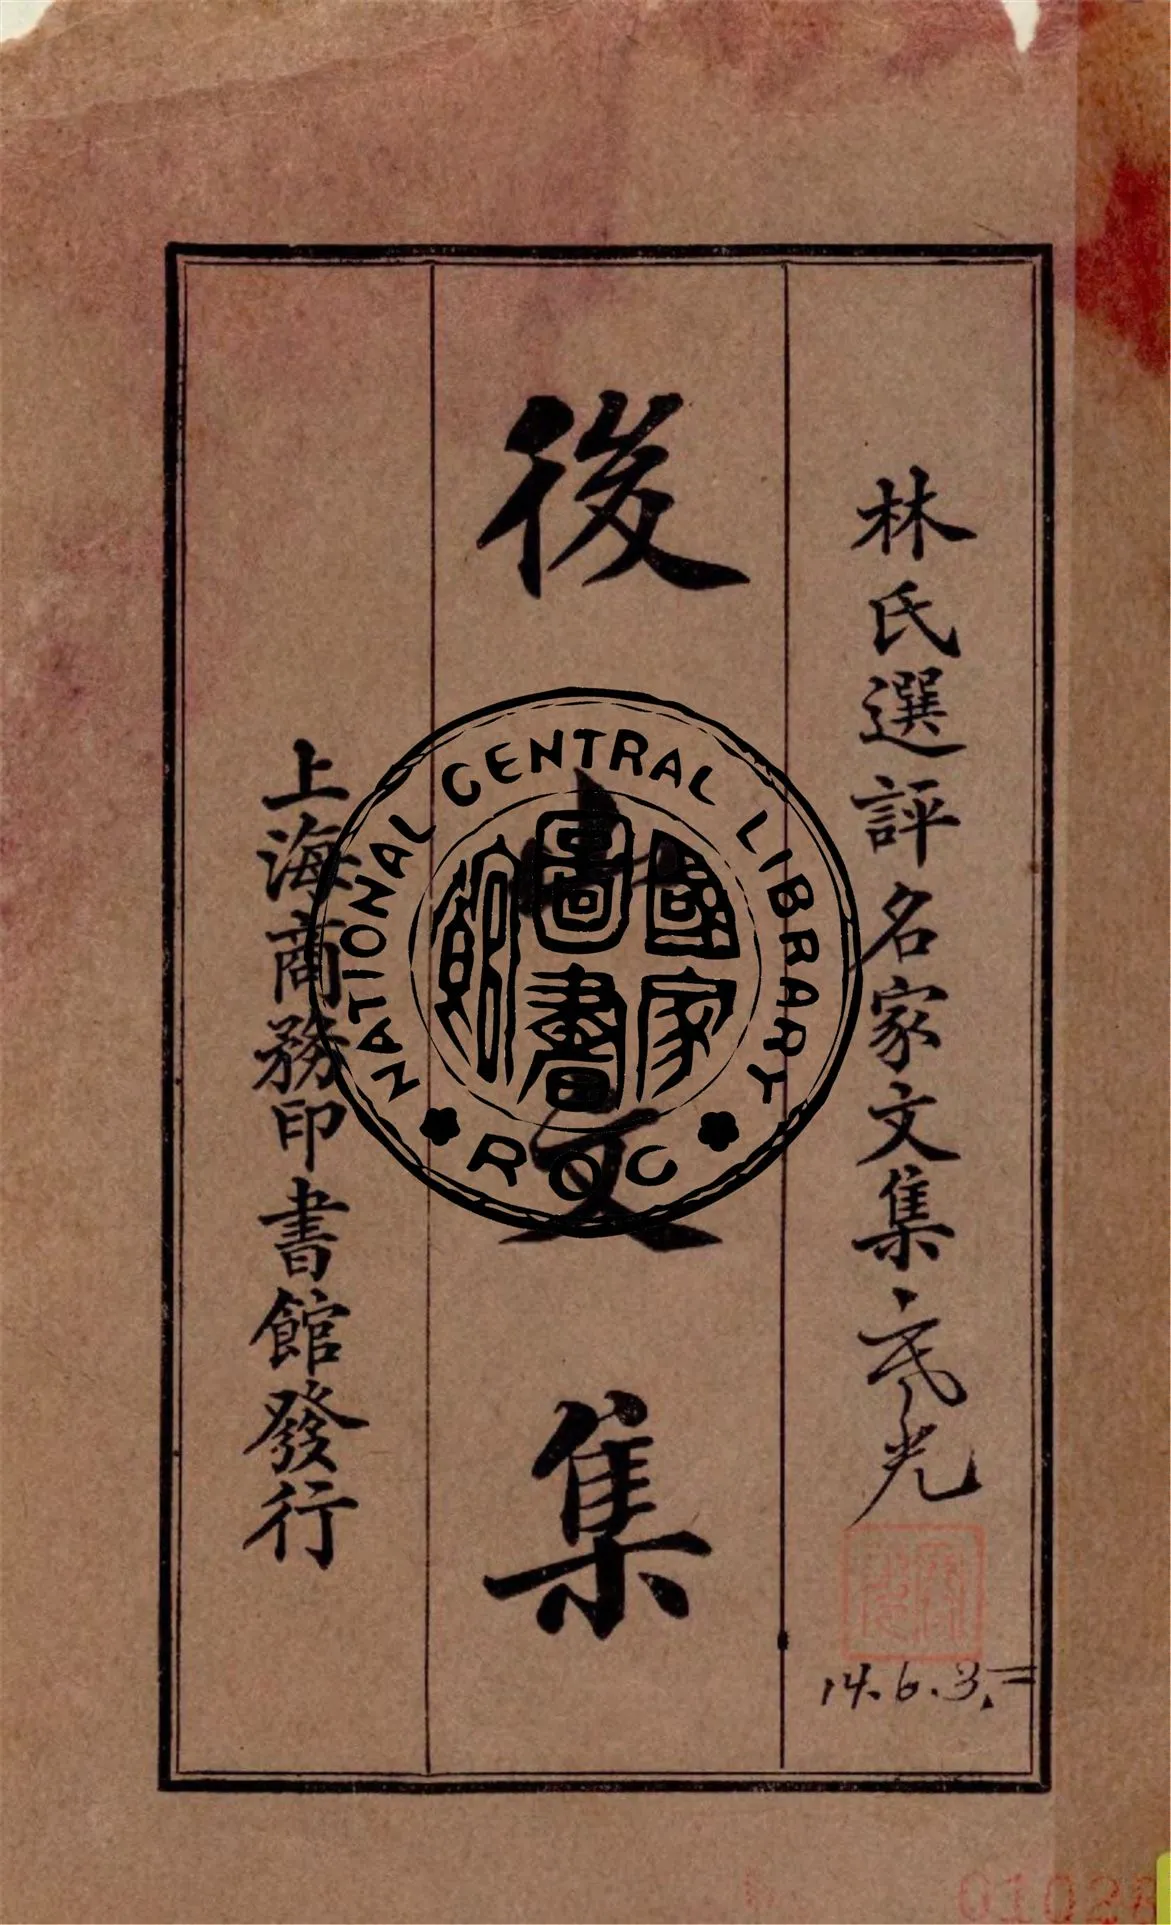 林氏選評名家文集
14.6.3.二
後山文集
上海商務印書館發行
NATIONAL CENTRAL LIBRARY
國家圖書館
ROC